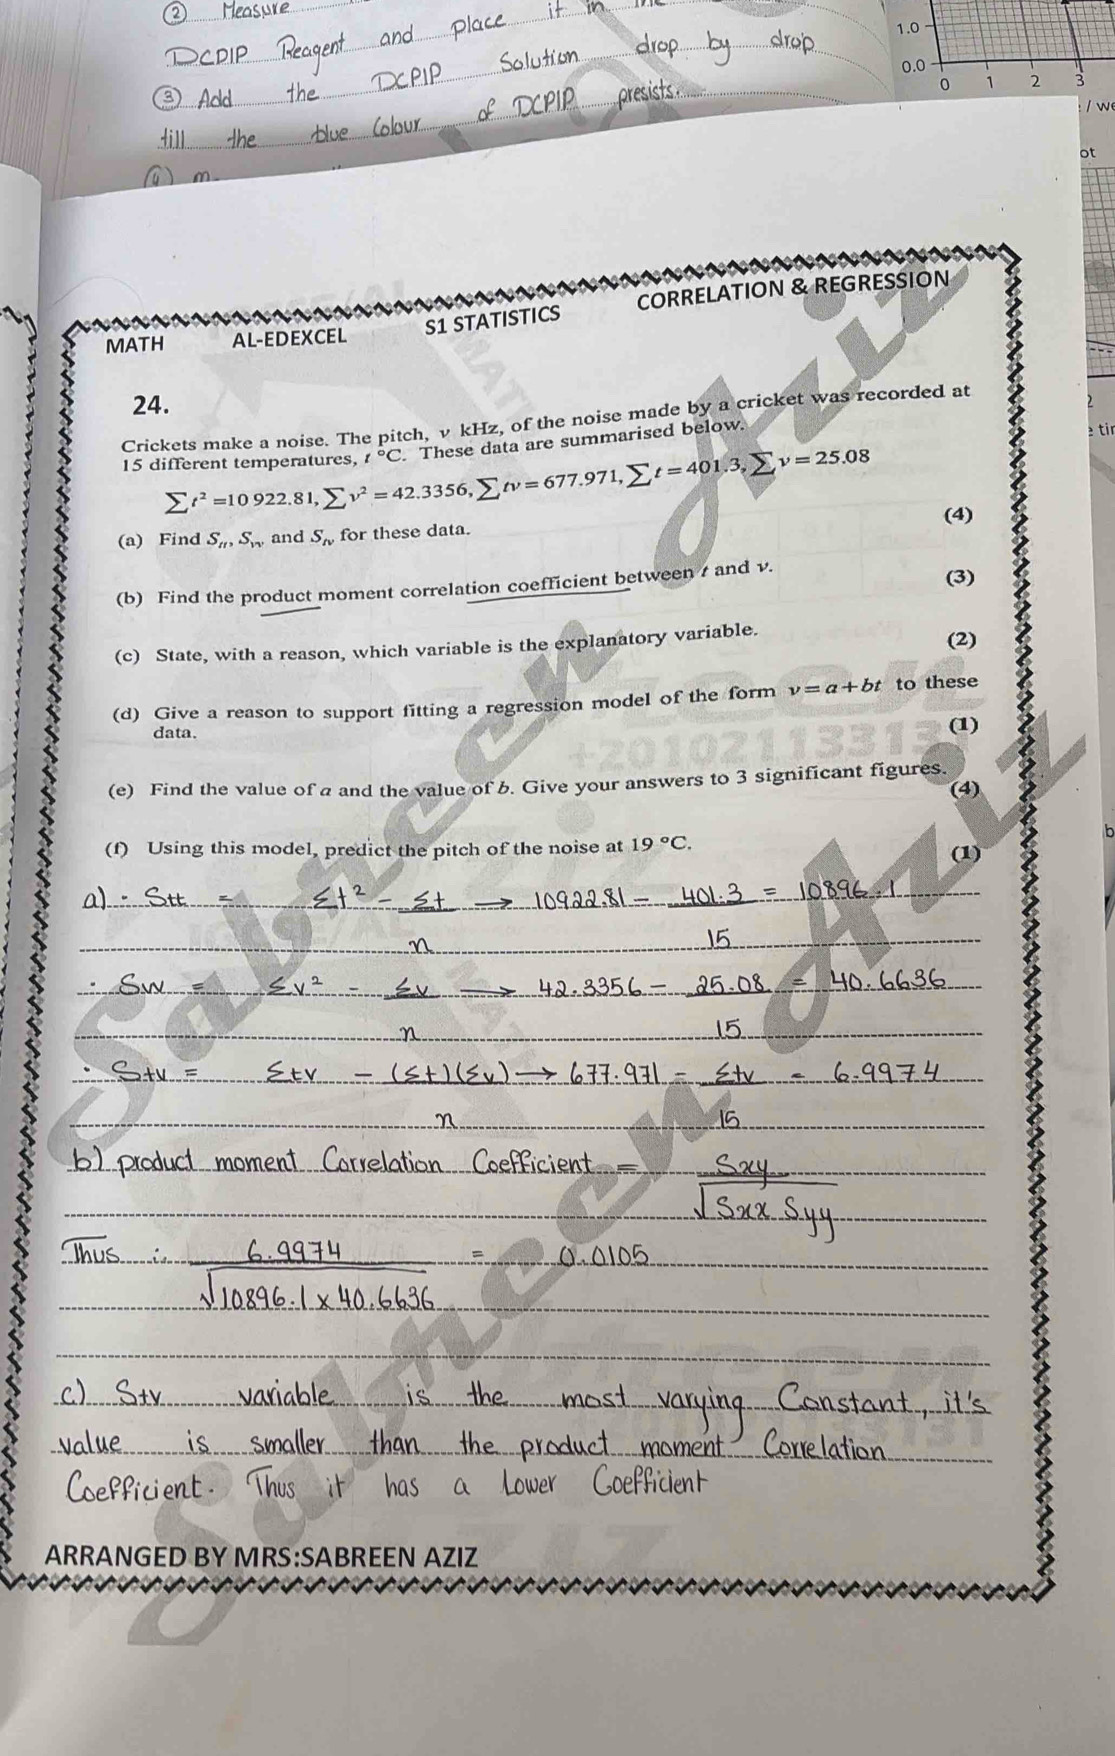 ② Measure it in
DCPIP Reagent and place
③ Add the DCPIP Solution drop by drop
till the blue Colour of DCPIP presists.
(4)
1.0
0.0
0 1 2 3
/ we
ot
MATH AL-EDEXCEL S1 STATISTICS CORRELATION & REGRESSION
24.
Crickets make a noise. The pitch, v kHz, of the noise made by a cricket was recorded at
15 different temperatures, t °C. These data are summarised below.
∑t² =10 922.81, ∑v² = 42.3356, ∑tv = 677.971, ∑t = 401.3, ∑v = 25.08
(a) Find Sₜₜ, Sᵥᵥ and Sₜᵥ for these data.
(4)
(b) Find the product moment correlation coefficient between t and v.
(3)
(c) State, with a reason, which variable is the explanatory variable.
(2)
(d) Give a reason to support fitting a regression model of the form v = a + bt to these
data.
(1)
(e) Find the value of a and the value of b. Give your answers to 3 significant figures.
(4)
(f) Using this model, predict the pitch of the noise at 19 °C.
(1)
a) · Stt = Σt² - Σt → 10922.81 - 401.3 = 10896.1
n 15
· Svv = Σv² - Σv → 42.3356 - 25.08 = 40.6636
n 15
· Stv = Σtv - (Σt)(Σv) → 677.971 - Σtv = 6.9974
n 15
b) product moment Correlation Coefficient = Sxy
√Sxx Syy
Thus :. 6.9974 = 0.0105
√10896.1 x 40.6636
c) Stv variable is the most varying Constant, it's
value is smaller than the product moment Correlation
Coefficient. Thus it has a Lower Coefficient
ARRANGED BY MRS:SABREEN AZIZ
Sabreen Aziz
Sabreen Aziz
+201021133131